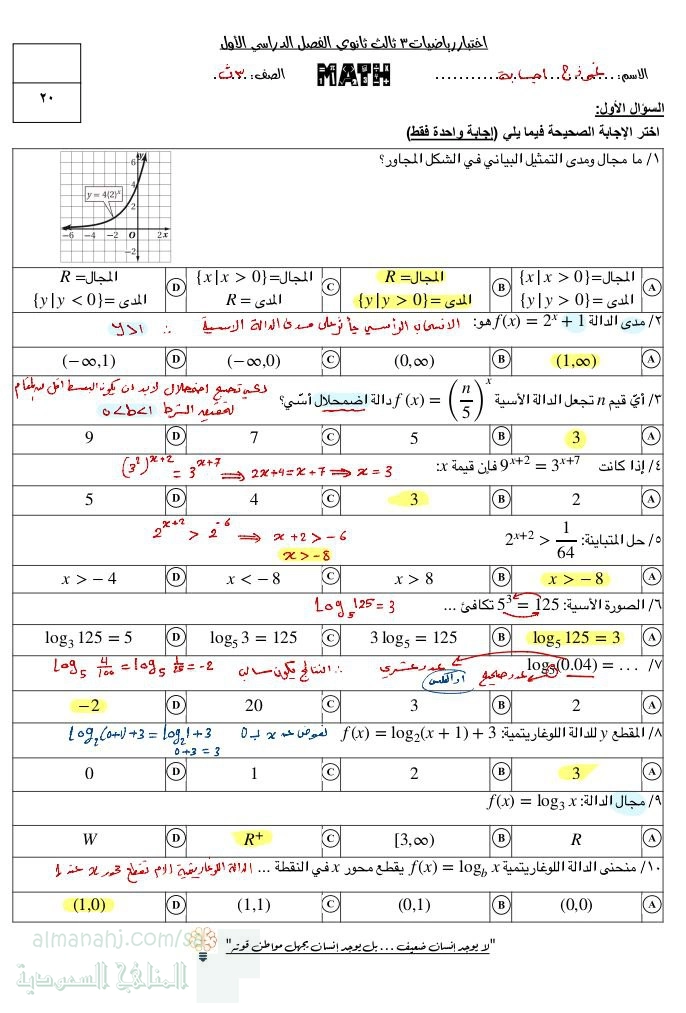 اختبار رياضيات ٣ ثالث ثانوي الفصل الدراسي الأول
الاسم: ........نموذج...إجابة........... MATH الصف: ..٣ث..
٢٠
السؤال الأول:
اختر الإجابة الصحيحة فيما يلي (إجابة واحدة فقط)
١/ ما مجال ومدى التمثيل البياني في الشكل المجاور؟
y = 4(2)^x
A المجال={x | x > 0} المدى ={y | y > 0} B المجال= R المدى ={y | y > 0} C المجال={x | x > 0} المدى = R D المجال= R المدى ={y | y < 0}
٢/ مدى الدالة f(x) = 2^x + 1 هو: الانسحاب الرأسي يأثر على مدى الدالة الأسية ∴ y>1
A (1,∞) B (0,∞) C (−∞,0) D (−∞,1)
٣/ أيّ قيم n تجعل الدالة الأسية f(x) = (n/5)^x دالة اضمحلال أسّي؟ لكي تصبح اضمحلال لابد ان يكون البسط اقل من المقام
لتحقيق الشرط 0<b<1
A 3 B 5 C 7 D 9
٤/ إذا كانت 9^{x+2} = 3^{x+7} فإن قيمة x: (3^2)^{x+2} = 3^{x+7} ⟹ 2x+4 = x+7 ⟹ x = 3
A 2 B 3 C 4 D 5
٥/ حل المتباينة: 2^{x+2} > 1/64 2^{x+2} > 2^{-6} ⟹ x+2 > -6
x > -8
A x > − 8 B x > 8 C x < − 8 D x > − 4
٦/ الصورة الأسية: 5^3 = 125 تكافئ ... log_5 125 = 3
A log_5 125 = 3 B 3 log_5 = 125 C log_5 3 = 125 D log_3 125 = 5
٧/ log_5(0.04) = … عدد صحيح عدد عشري أو العكس ∴ الناتج يكون سالب log_5 4/100 = log_5 1/25 = -2
A 2 B 3 C 20 D −2
٨/ المقطع y للدالة اللوغاريتمية: f(x) = log_2(x + 1) + 3 نعوض عن x بـ 0 log_2(0+1)+3 = log_2 1+3
0+3 = 3
A 3 B 2 C 1 D 0
٩/ مجال الدالة: f(x) = log_3 x
A R B [3,∞) C R^+ D W
١٠/ منحنى الدالة اللوغاريتمية f(x) = log_b x يقطع محور x في النقطة ... الدالة اللوغاريتمية الأم تقطع محور x عند 1
A (0,0) B (0,1) C (1,1) D (1,0)
"لا يوجد إنسان ضعيف ... بل يوجد إنسان يجهل مواطن قوته"
almanahj.com/sa
المناهج السعودية